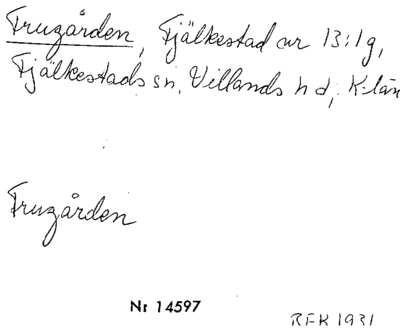 Frugården, Fjälkestad nr 13:1g,
Fjälkestads sn, Villands hd, K-län
Frugården
Nr 14597
RFK 1931